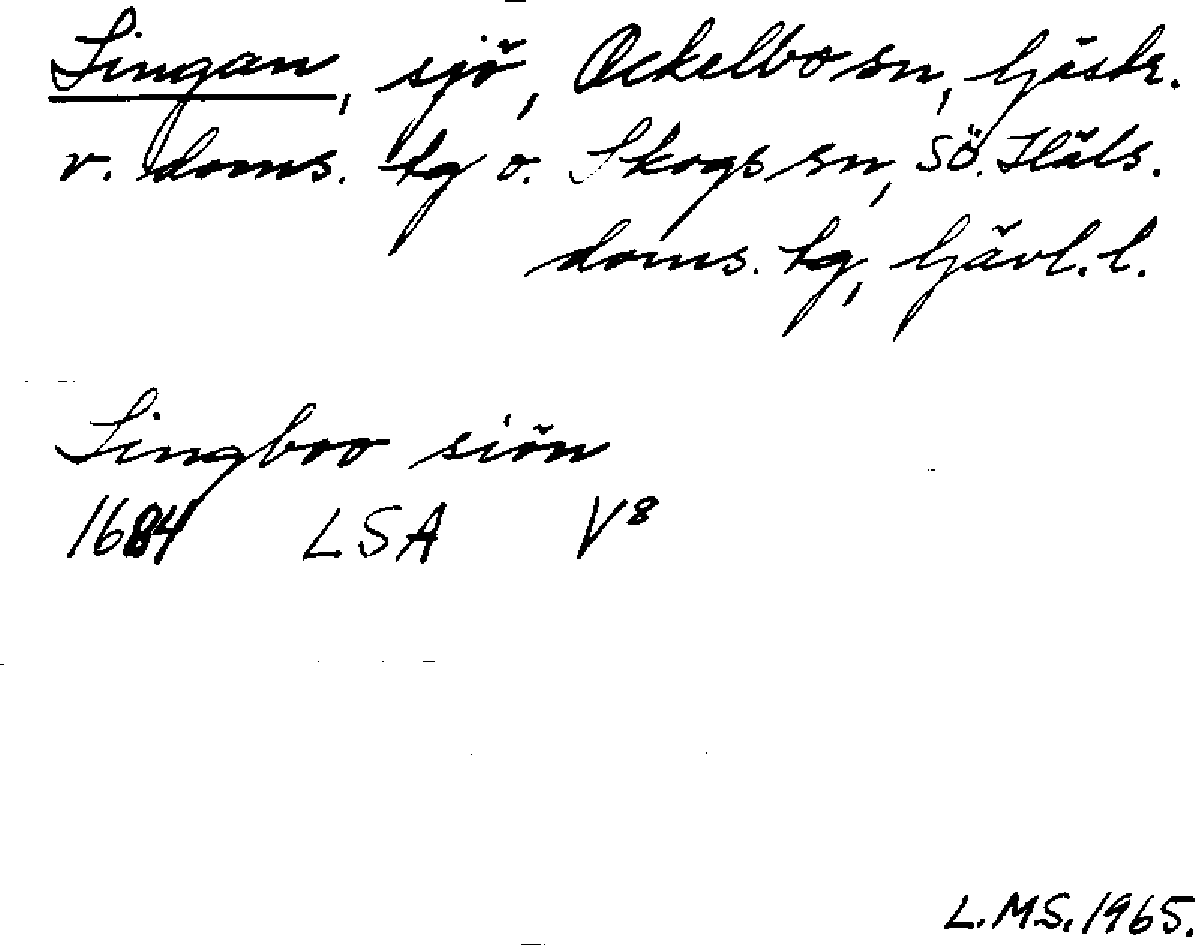 Lingan, sjö, Ockelbo sn, Gästr.
v. doms. tg o. Skogs sn, Sö. Häls.
doms. tg, Gävl. l.
Lingboo siön
1684 LSA V8
L.M.S. 1965.